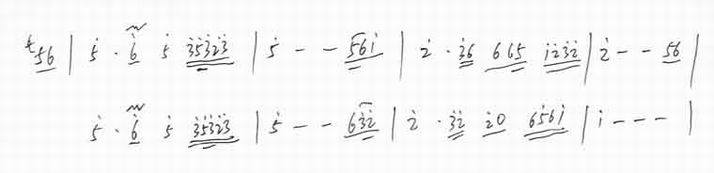 56 | 5̇ · 6̇ 5̇ 3̇5̇3̇2̇3̇ | 5̇ - - 561̇ | 2̇ · 3̇6 665 1̇2̇3̇2̇ | 2̇ - - 56 |
5̇ · 6̇ 5̇ 3̇5̇3̇2̇3̇ | 5̇ - - 63̇2̇ | 2̇ · 3̇2̇ 2̇0 6561̇ | 1̇ - - - |